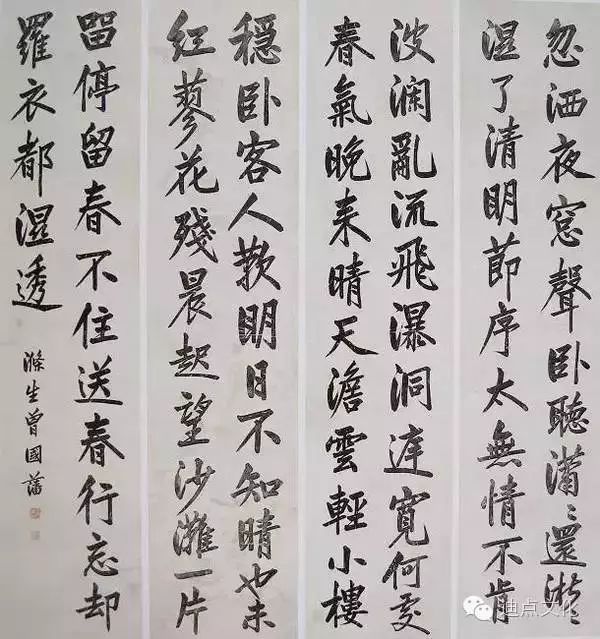 忽洒夜窓聲卧聽瀟〻還淅〻
湿了清明節序太無情不肯
波澜亂流飛瀑洞庭寬何處
春氣晚来晴天澹雲輕小樓
穩卧客人歎明日不知晴也未
红蓼花殘晨起望沙灘一片
留停留春不住送春行忘却
羅衣都湿透
滌生曾國藩
迪点文化